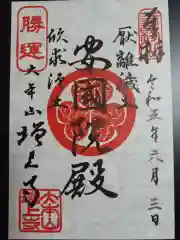 奉拝
令和五年六月三日
厭離穢土
安国殿
欣求浄土
勝運
大本山増上寺